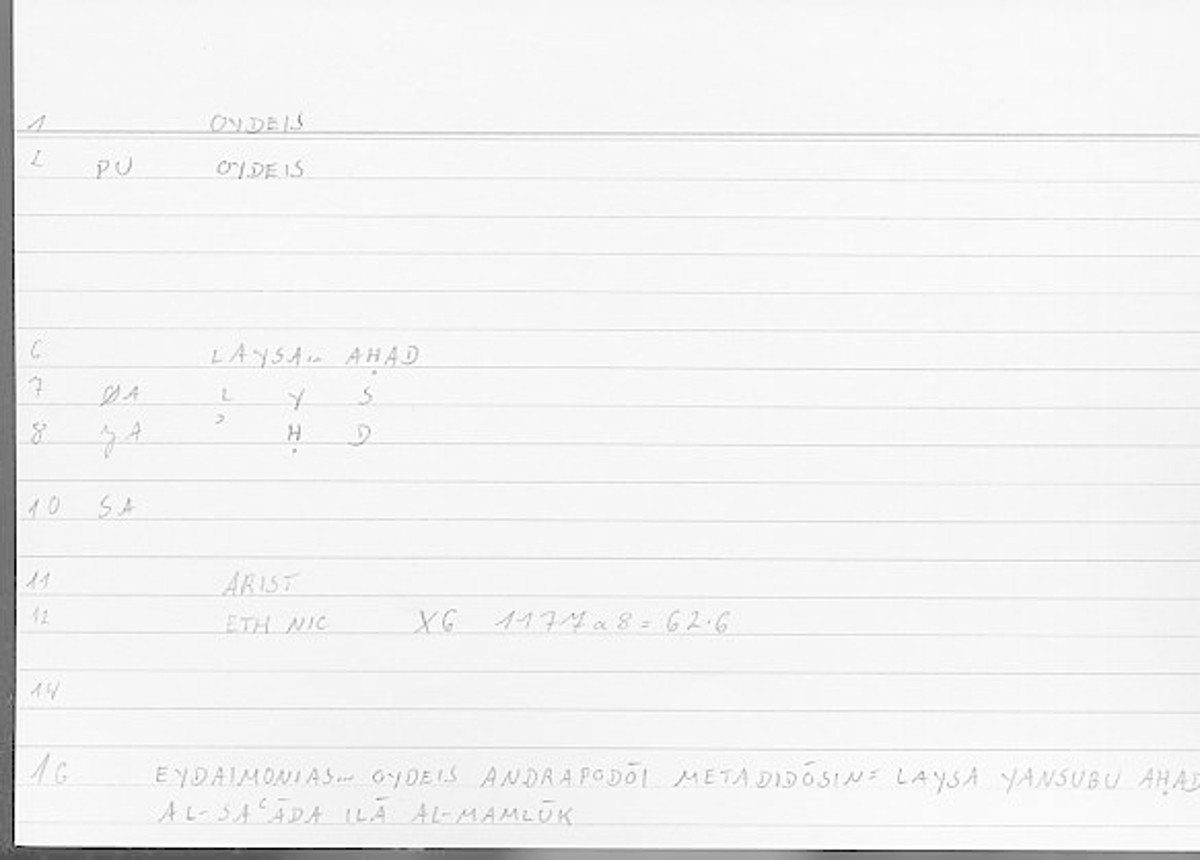 1 OYDEIS
2 PU OYDEIS
6 LAYSA... AḤAD
7 ØA L Y S
8 ʒA ʾ Ḥ D
10 SA
11 ARIST
12 ETH NIC X6 1177a8=62.6
14
16 EYDAIMONIAS... OYDEIS ANDRAPODŌI METADIDŌSIN= LAYSA YANSUBU AḤAD
AL-SAʿĀDA ILĀ AL-MAMLŪK